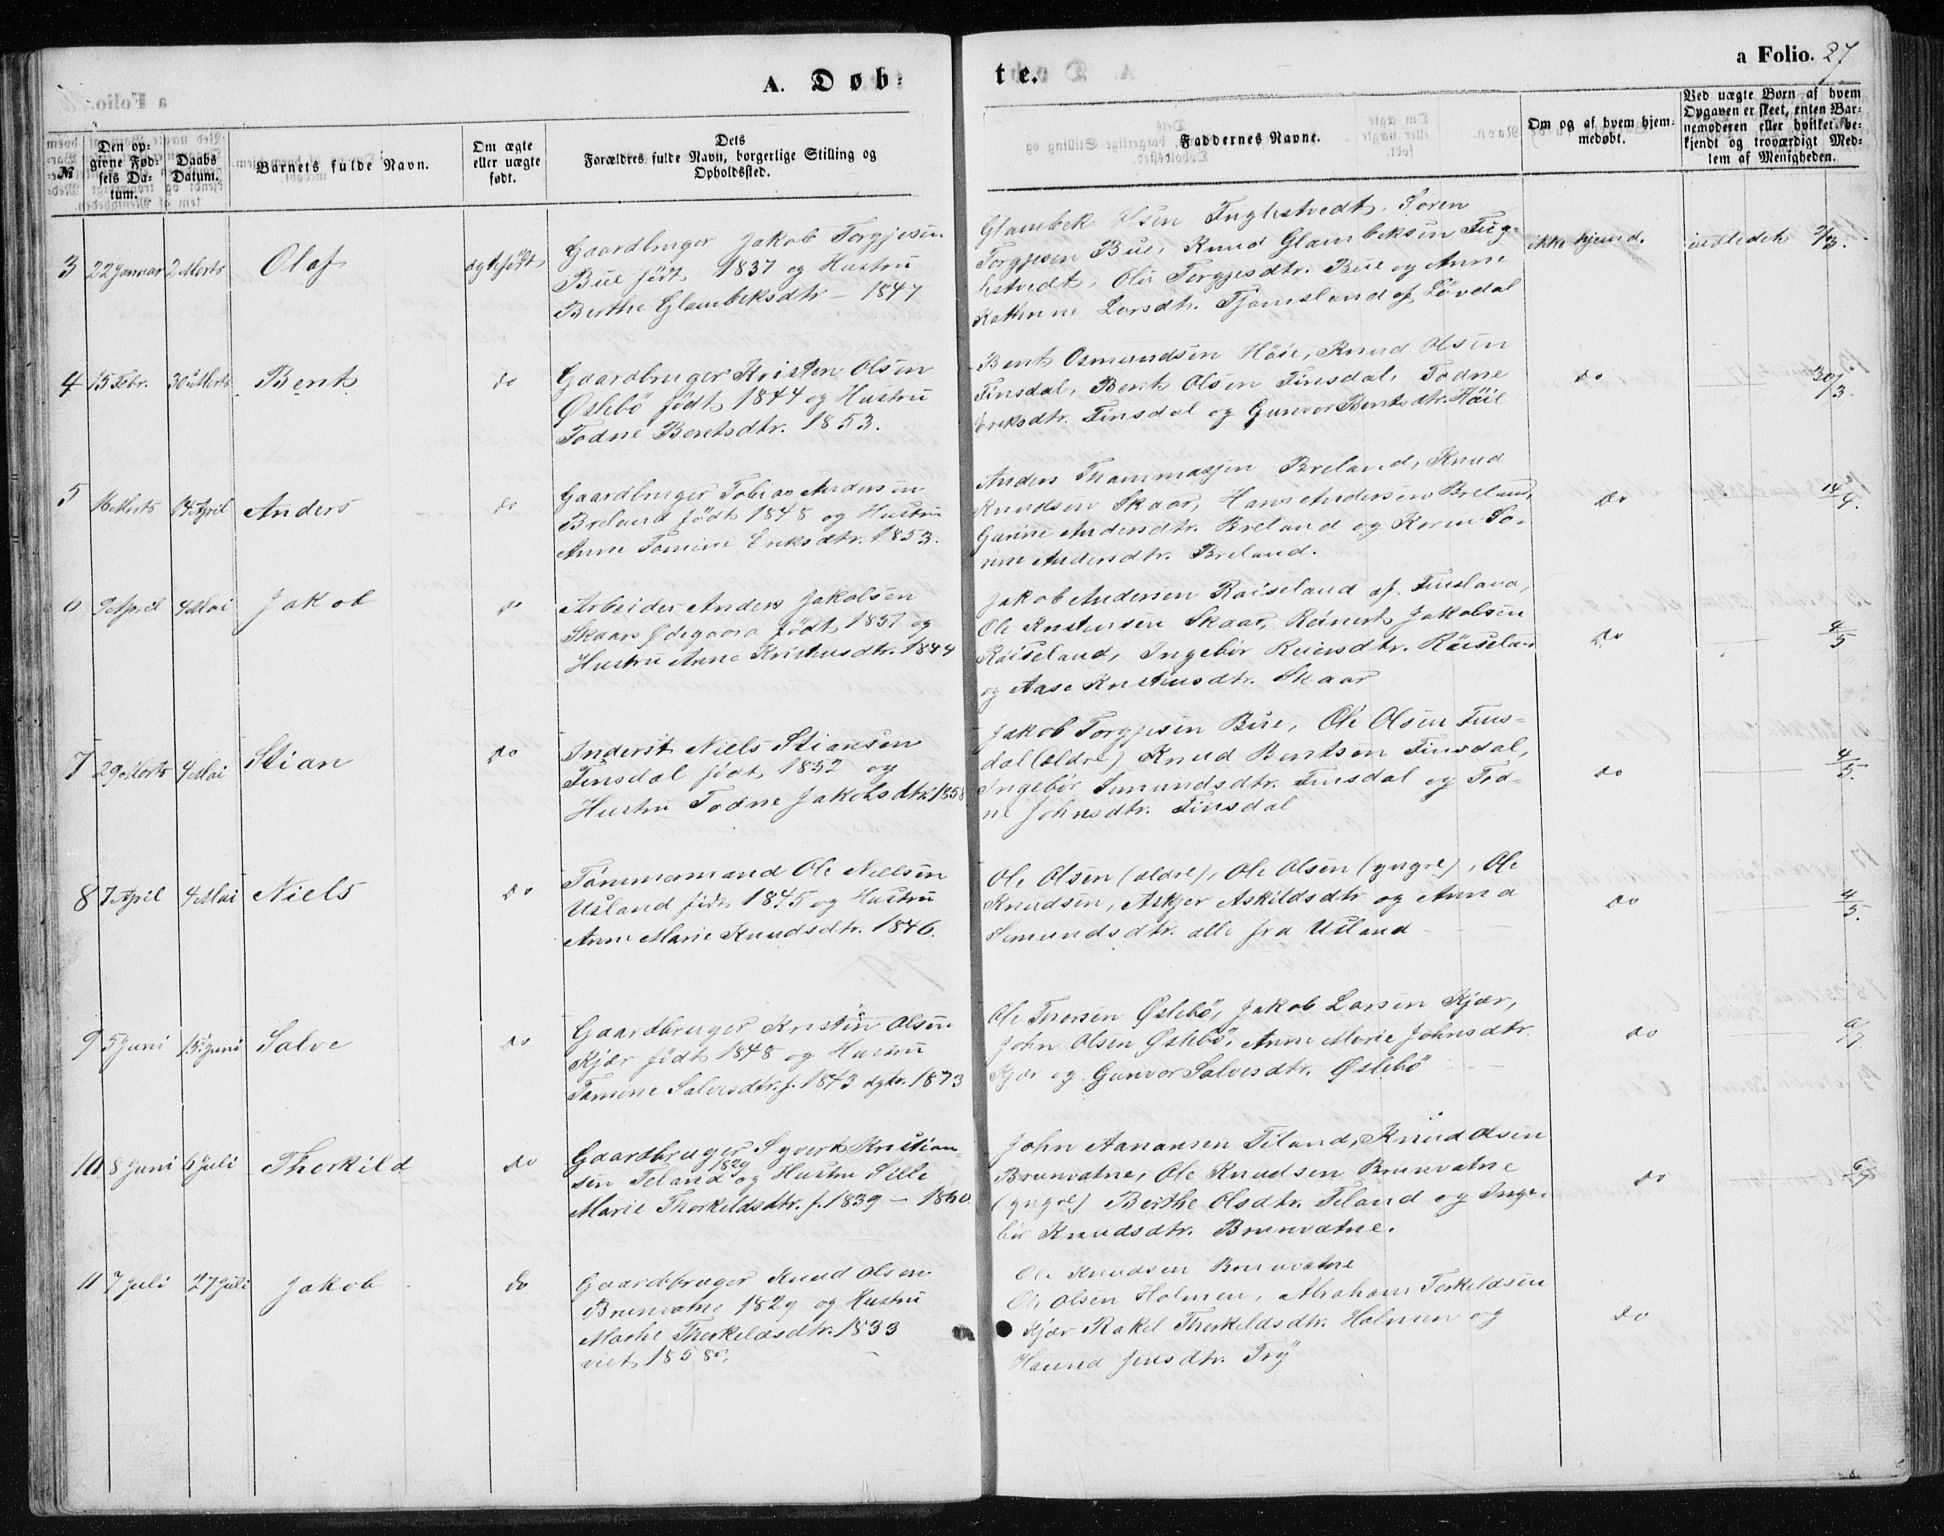 A. Døb=
te.
a Folio. 27
№
Den op=
givne Fød=
sels Da=
tum.
Daabs
Datum.
Barnets fulde Navn.
Om ægte
eller uægte
født.
Dets
Forældres fulde Navn, borgerlige Stilling og
Opholdssted.
Faddernes Navne.
Om og af hvem hjem=
medøbt.
Ved uægte Børn af hvem
Opgaven er skeet, enten Bar=
nemoderen eller hvilket be=
kjendt og troværdigt Med=
lem af Menigheden.
3 22 Januar 2 Marts Olaf ægtefødt
Gaardbruger Jakob Torgjesen
Bue født 1837 og Hustru
Berthe Glambeksdtr - 1847
Glambek Olsen Fuglestvedt, Søren
Torgjesen Bue, Knud Glambeksen Fug-
lestvedt, Olir Torgjesdtr. Bue og Anne
Kathrine Larsdtr. Tjomsland af Løvdal
ikke hjemd. indledet 2/3.
4 15 Febr. 30 Marts Bent do
Gaardbruger Kristen Olsen
Øslebö födt 1844 og Hustru
Todne Bentsdtr. 1853.
Bent Osmundsen Höie, Knud Olsen
Finsdal, Bent Olsen Finsdal, Todne
Eriksdtr. Finsdal og Gunvor Bentsdtr. Höie
do 30/3.
5 16 Marts 14 April Anders do
Gaardbruger Tobias Andersen
Breland født 1848 og Hustru
Anne Tomine Eriksdtr. 1853.
Anders Thommassen Breland, Knud
Knudsen Skaar, Hans Andersen Breland,
Gurine Andersdtr. Breland og Karen So-
rine Andersdtr. Breland.
do 14/4.
6 9 April 4 Mai Jakob do
Arbeider Anders Jakobsen
Skaars Ødegaard født 1837 og
Hustru Anne Kristensdtr. 1844
Jakob Andersen Raiseland af Finsland,
Ole Kristensen Skaar, Reinert Jakobsen
Raiseland, Ingebør Reiersdtr. Räiseland
og Aase Kristensdtr. Skaar
do 4/5
7 29 Marts 4 Mai Stian do
Inderst Niels Stiansen
Finsdal født 1852 og
Hustru Todne Jakobsdtr. 1858
Jakob Torgjesen Bue, Ole Olsen Fins-
dal (ældre) Knud Bentsen Finsdal,
Ingebör Semundsdtr. Finsdal og Tod-
ne Johnsdtr. Finsdal
do 4/5.
8 7 April 4 Mai Niels do
Tömmermand Ole Nielsen
Usland født 1845 og Hustru
Anne Marie Knudsdtr. 1846.
Ole Olsen (ældre), Ole Olsen (yngre), Ole
Knudsen, Askjer Askildsdtr og Anna
Semundsdtr. alle fra Usland
do 4/5.
9 5 Juni 15 Juni Salve do
Gaardbruger Kristen Olsen
Kjær født 1848 og Hustru
Tomine Salvesdtr. f. 1843 ægtv. 1873
Ole Thorsen Øslebö, Jakob Larsen Kjær,
John Olsen Øslebö, Anne Marie Johnsdtr.
Kjær og Gunvor Salvesdtr. Øslebö
do 6/7
10 18 Juni 6 Juli Therkild do
Gaardbruger Syvert Kristian-
sen Feland 1829 og Hustru Sille
Marie Therkildsdtr. f. 1839 - 1860.
John Aanansen Tiland, Knud Olsen
Brunvatne, Ole Knudsen Brunvatne
(yngre) Berthe Olsdtr. Tiland og Inge-
bör Knudsdtr. Brunvatne.
do 6/7
11 7 Juli 27 Juli Jakob do
Gaardbruger Knud Olsen
Brunvatne 1829 og Hustru
Marthe Therkeldsdtr. 1833
viet 1858.
Ole Knudsen Brunvatne
Ole Olsen Holmen, Abraham Terkeldsen
Kjær Rakel Therkeldsdtr. Holmen og
Hanna Jensdtr. Try
do